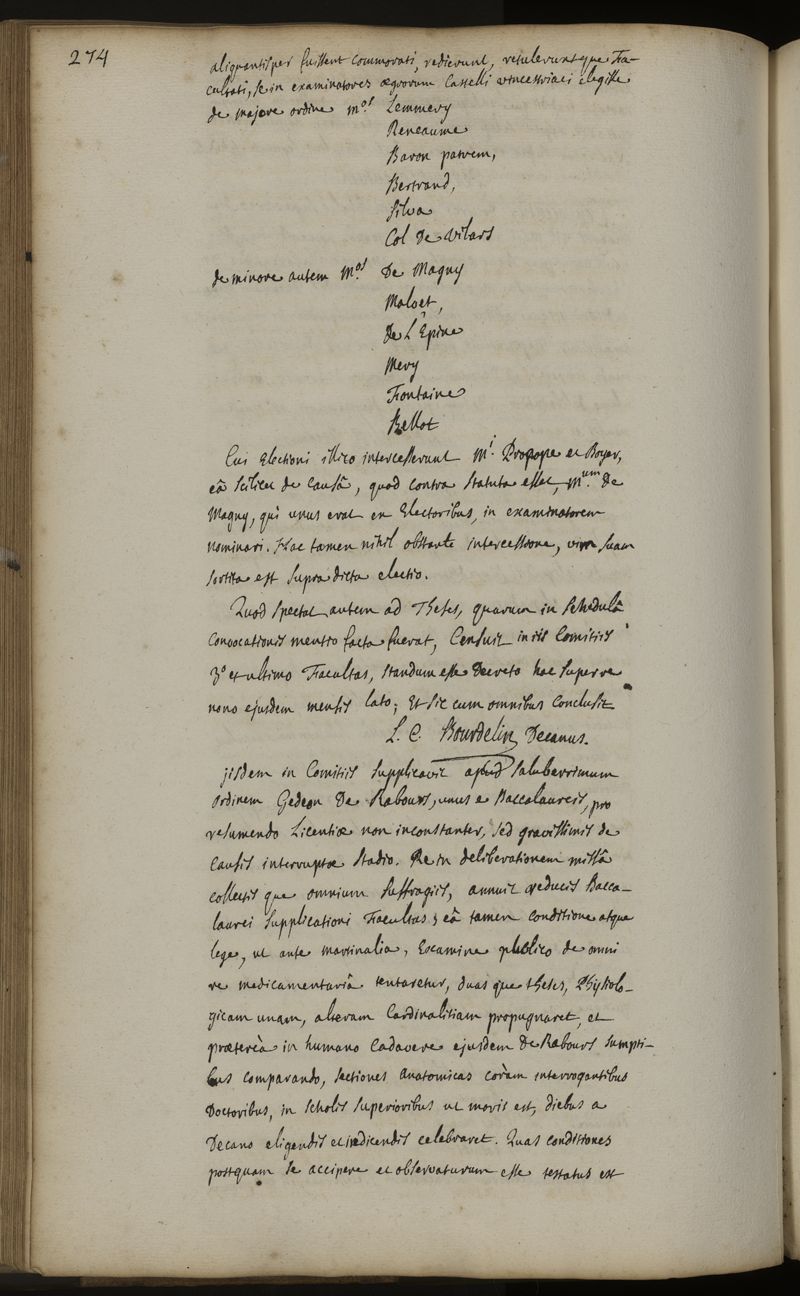 274
aliquantisper fuissent commorati, redierunt, retuleruntque Fa-
cultati, se in examinatores ægrorum Castelli elegisse
de majore ordine M.os Lemmery
Reneaume
Baron patrem,
Bertrand,
Silva
Col De Vilars
de minore autem M.os De Magny
Maloet,
De L'Epine
Mery
Fontaine
Bellot
Cui Electioni illico intercesserunt M.i Propope et Boyer,
eâ scilicet de causâ, quod contra statuta esset, M.um De
Magny, qui unus erat ex Electoribus, in examinatorem
nominari. Hac tamen nihil obstante intercessione, vim suam
sortita est supradicta electio.
Quod spectat autem ad Theses, quarum in schedulâ
convocationis mentio facta fuerat, Censuit in iis Comitiis
3.o et ultimo Facultas, standum esse Decreto hac super re
nono ejusdem mensis lato; Et sic cum omnibus conclusit
L. C. Bourdelin Decanus.
jisdem in Comitiis supplicavit apud saluberrimum
ordinem Gedeon De Rabours, unus e Baccalaureis, pro
resumendo Licentiæ non inconstanter, sed gravissimis de
causis interruptæ stadio. Re in deliberationem missâ
collectis que omnium suffragiis, annuit reducis Bacca-
laurei supplicationi Facultas; eâ tamen conditione atque
lege, ut ante martinalia, Examine publico de omni
re medicamentariâ tentaretur, duas que theses, Physiolo-
gicam unam, alteram Cardinalitiam propugnaret, et
prætereà in humano Cadavere ejusdem De Rabours sumpti-
bus comparando, sectiones anatomicas coràm interrogantibus
Doctoribus, in scholis superioribus ut moris est, diebus a
Decano eligendis et indicendis celebraret. Quas conditiones
postquam se accipere et observaturum esse testatus est